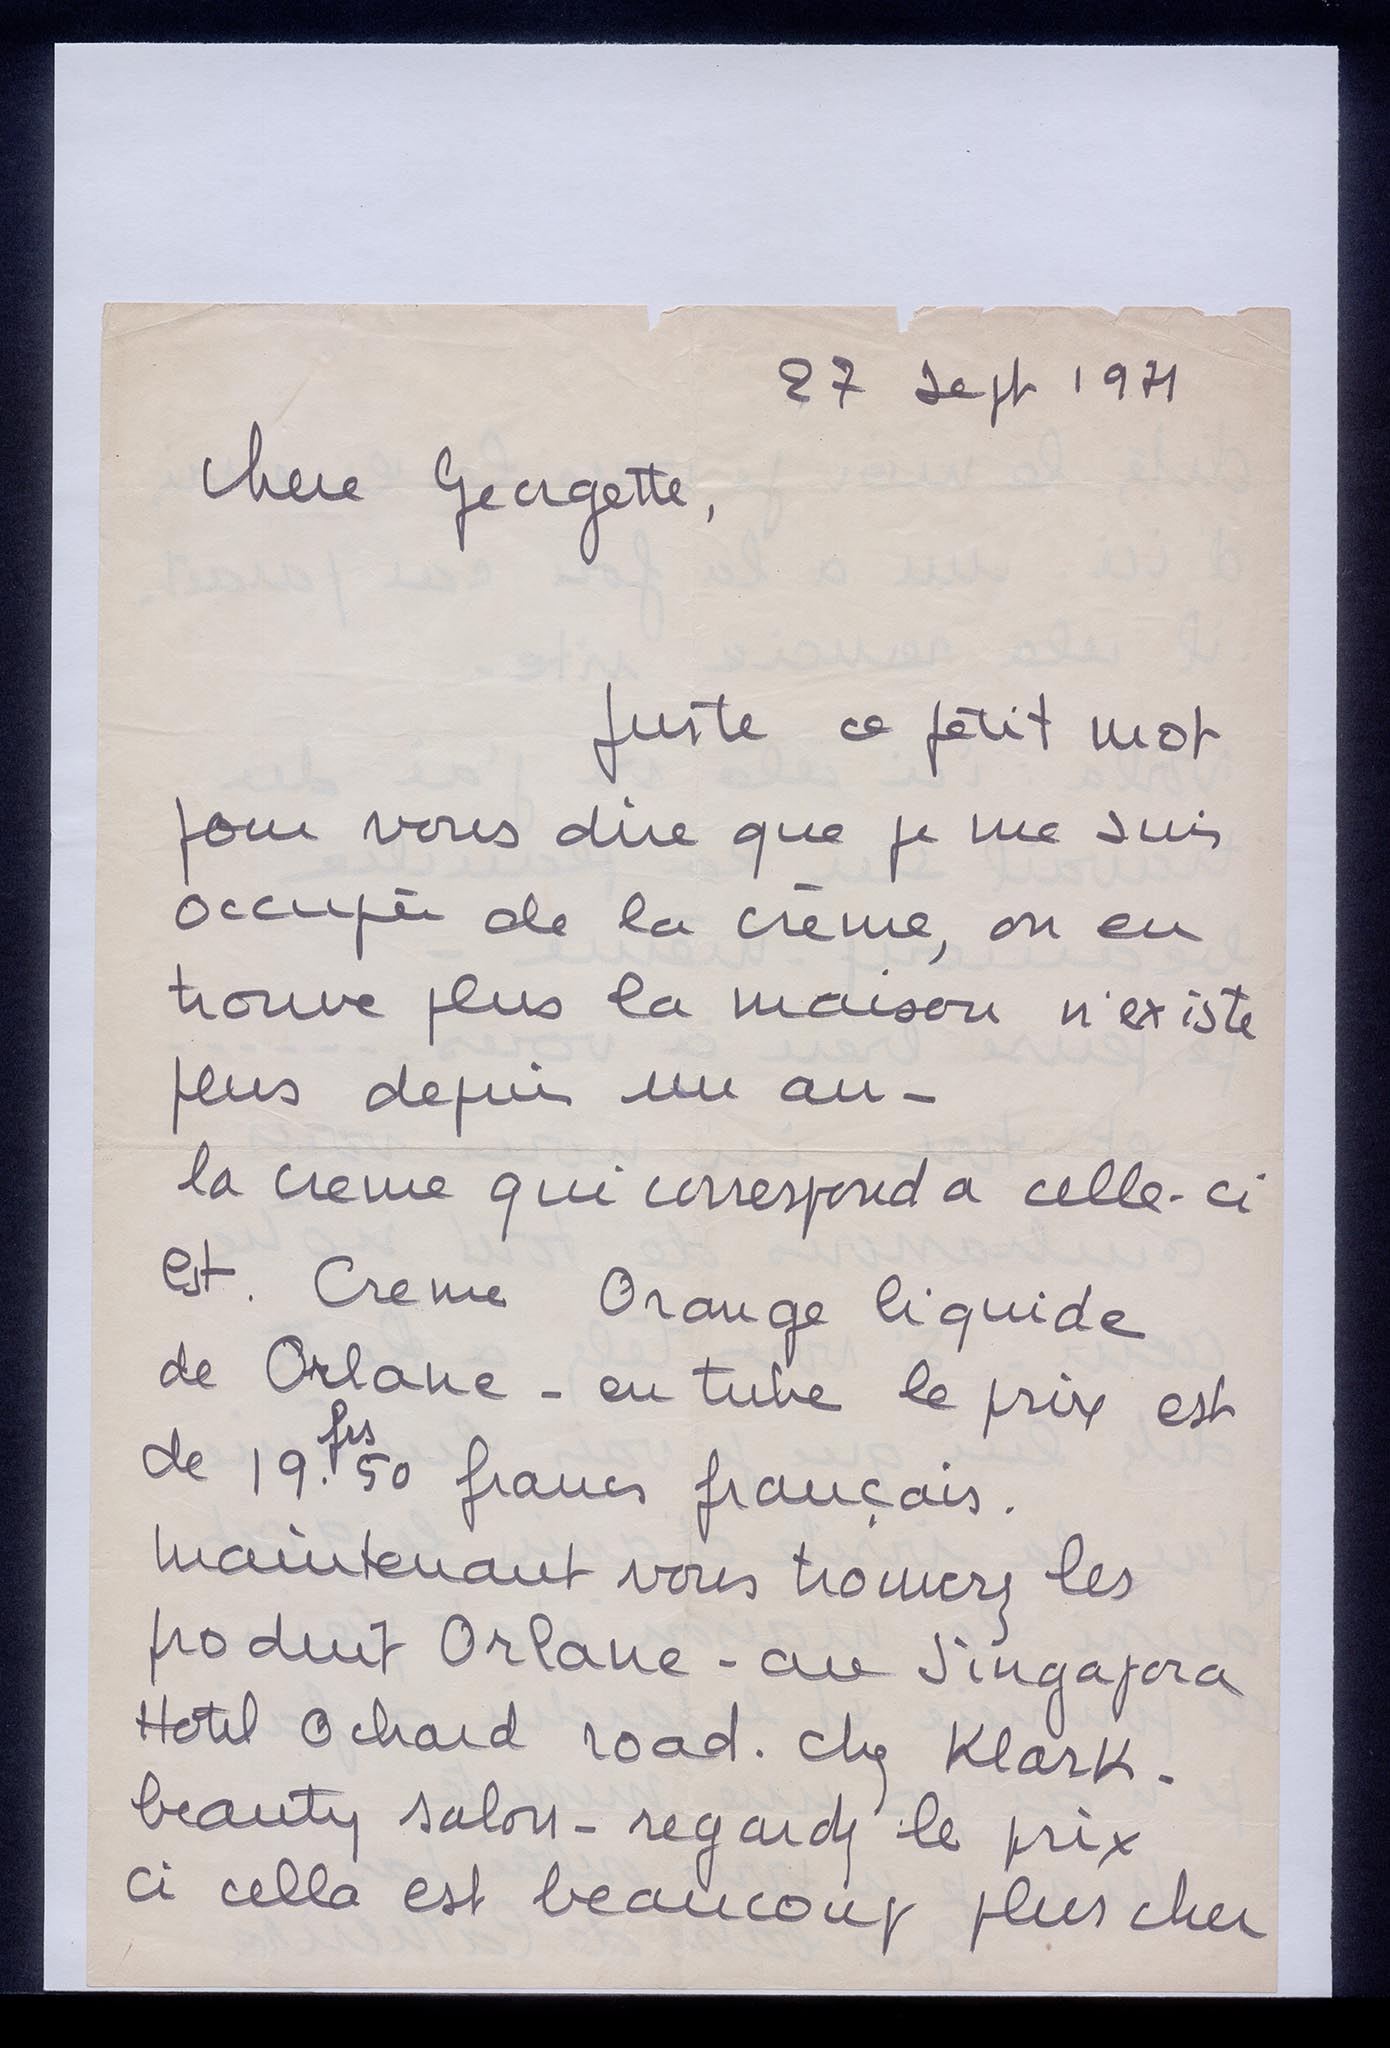 27 Sept 1971
Chere Georgette,
Juste ce pétit mot
pour vous dire que je me suis
occupée de la crème, on en
trouve plus la maison n'existe
plus depuis un an -
la creme qui correspond a celle-ci
est. Creme Orange liquide
de Orlane - en tube le prix est
de 19.frs50 francs français.
maintenant vous trouverez les
produit Orlane - au Singapora
Hotel Ochard road. chez Klark -
beauty salon - regardez le prix
ci cella est beaucoup plus cher